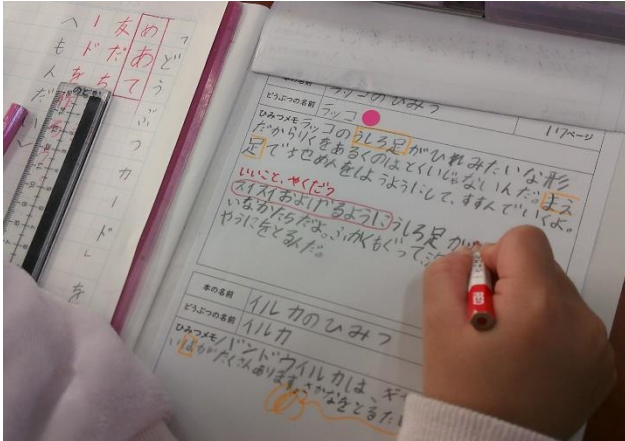 めあて
友だち
「どうぶつカード」を
本の名前
ラッコのひみつ
どうぶつの名前
ラッコ
117ページ
ひみつメモ
ラッコのうしろ足がひれみたいな形
だからりくをあるくのはとくいじゃないんだ。まえ
足でじめんを
ようにして、すすんでいくよ。
いいこと、やくだつ
スイスイおよげるようにうしろ足が
いなかたちだよ。ふかくもぐって、
やうにをとるんだ。
本の名前
イルカのひみつ
どうぶつの名前
イルカ
ひみつメモ
バンドウイルカは、
はがたくさんあります。さかなをとるた